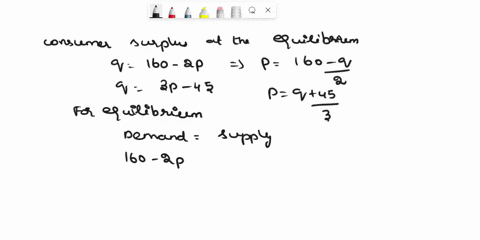 consumer surplus at the equilibrium
q = 160 - 2p => p = 160 - q / 2
q = 3p - 45 p = q + 45 / 3
For equilibrium
Demand = supply
160 - 2p